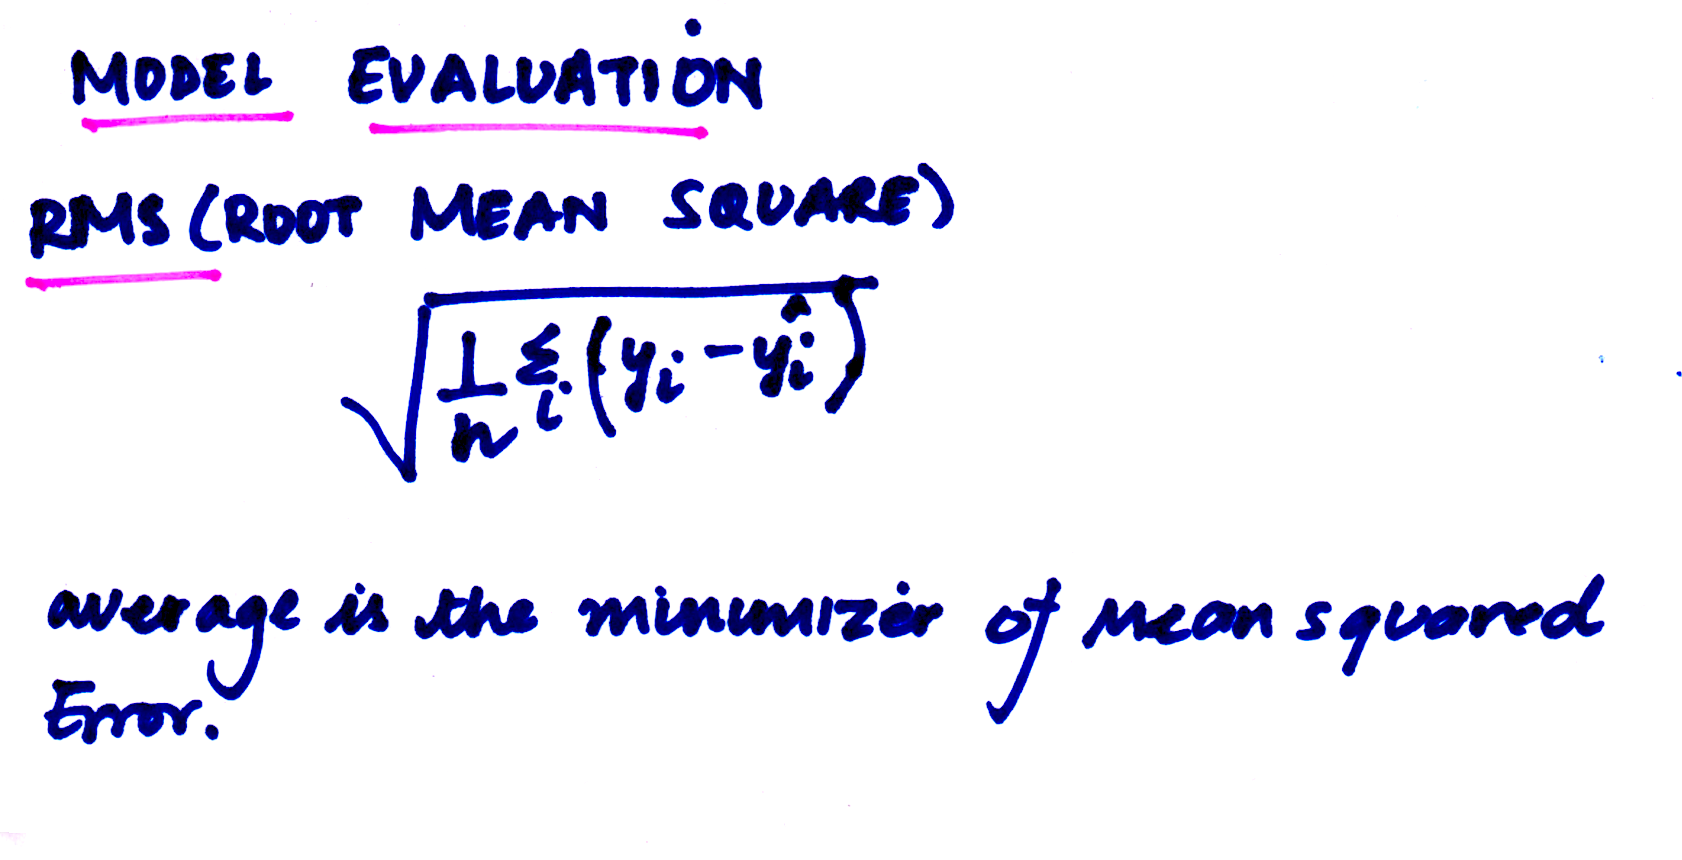 MODEL EVALUATION
RMS (ROOT MEAN SQUARE)
√(1/n Σᵢ (yᵢ - ŷᵢ))
average is the minimizer of Mean squared
Error.